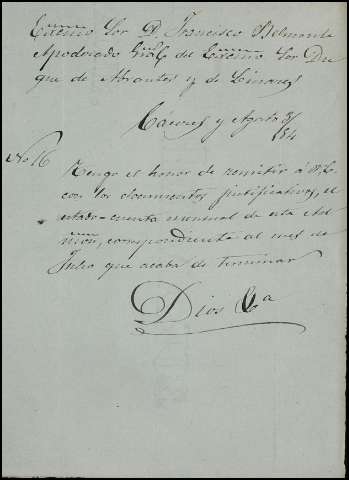 Excmo Sor D. Francisco Belmonte
Apoderado Gral del Excmo Sor Du
que de Abrantes y de Linares
Cáceres y Agosto 3/84
No 16
Tengo el honor de remitir á V. E.
con los documentos justificativos, el
estado-cuenta mensual de esta Ad
mon, correspondiente al mes de
Julio que acaba de terminar
Dios &a